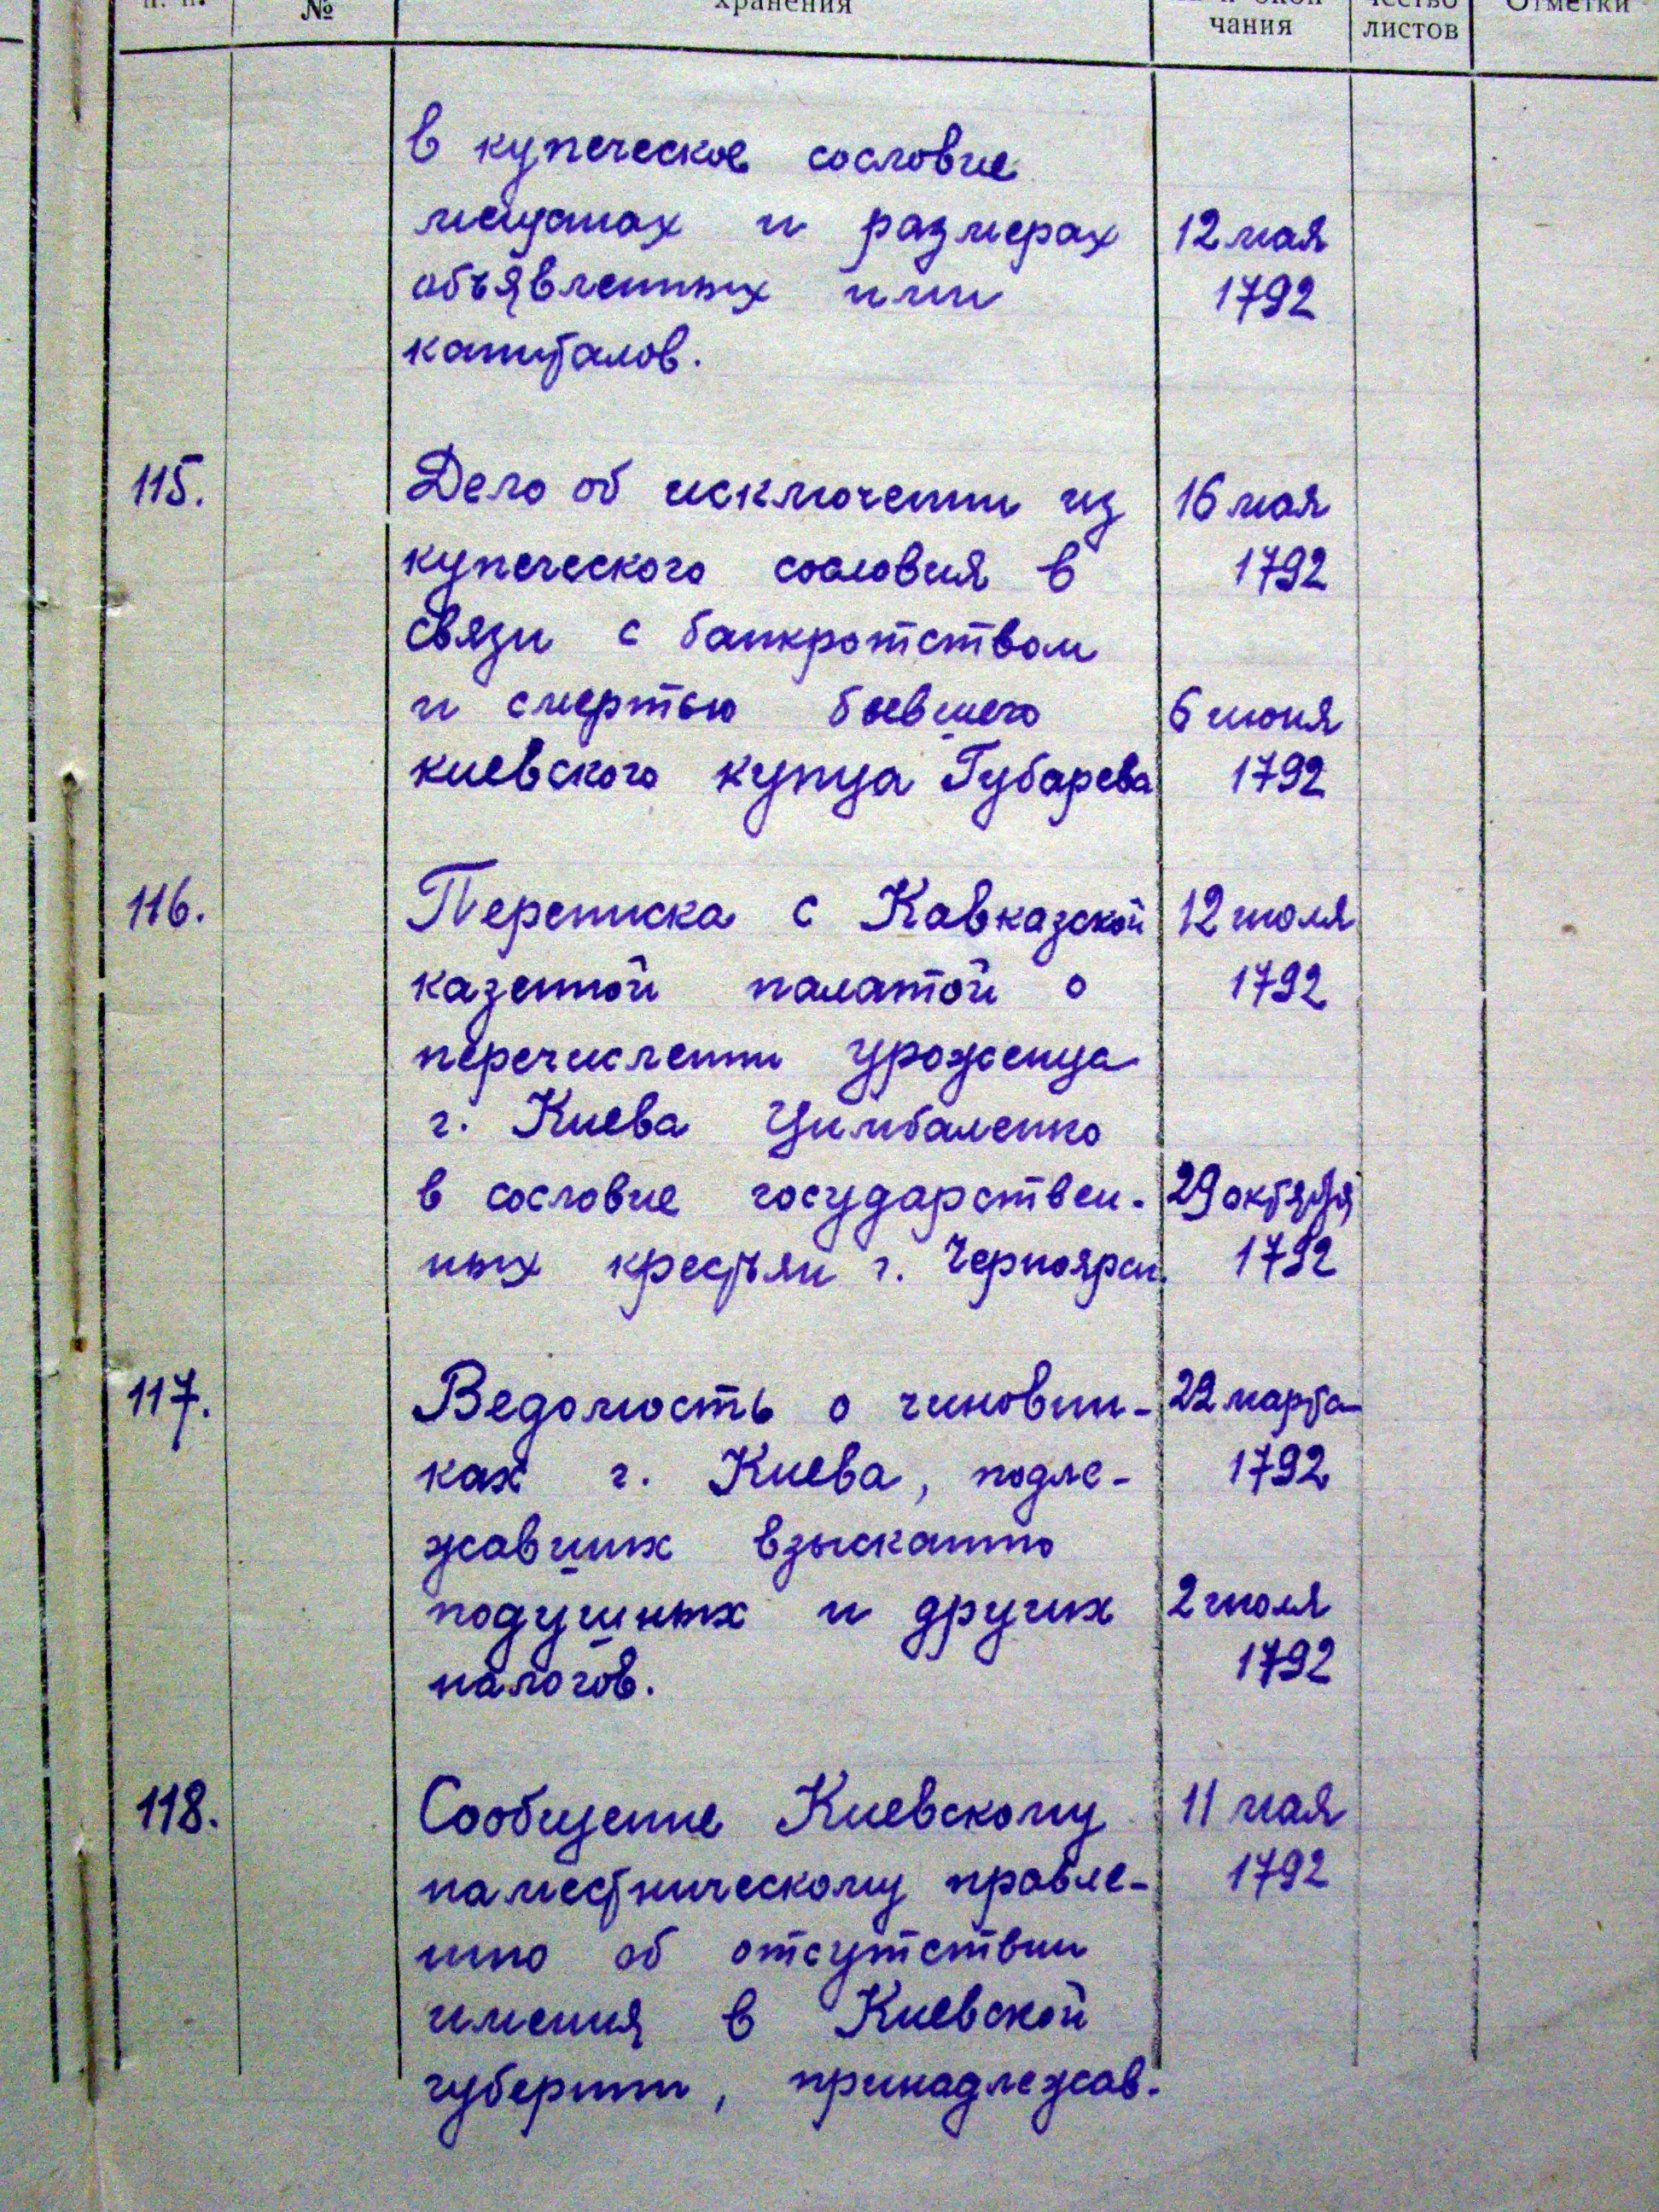 №
хранения
чания
листов
Отметки
в купеческое сословие
мещанах и размерах
объявленных ими
капиталов.
12 мая
1792
115.
Дело об исключении из
купеческого сословия в
связи с банкротством
и смертью бывшего
киевского купца Губарева
16 мая
1792
6 июня
1792
116.
Переписка с Кавказской
казенной палатой о
перечислении уроженца
г. Киева Цимбаленко
в сословие государствен-
ных крестьян г. Черноярск.
12 июля
1792
29 октября
1792
117.
Ведомость о чиновни-
ках г. Киева, подле-
жавших взысканию
подушных и других
налогов.
22 марта
1792
2 июля
1792
118.
Сообщение Киевскому
наместническому правле-
нию об отсутствии
имения в Киевской
губернии, принадлежав-
11 мая
1792